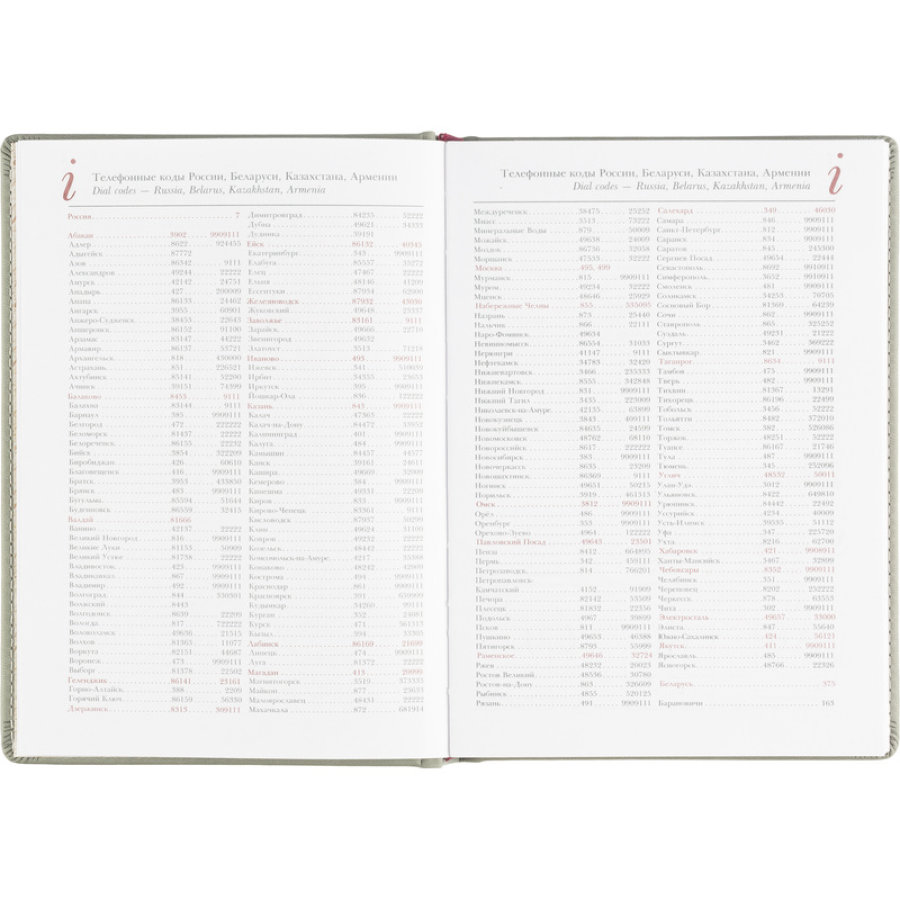 i
Телефонные коды России, Беларуси, Казахстана, Армении
Dial codes — Russia, Belarus, Kazakhstan, Armenia
Россия 7
Абакан 3902 9909111
Адлер 8622 924455
Адыгейск 87772
Азов 86342 9111
Александров 49244 22222
Амурск 42142 24751
Анадырь 427 200009
Анапа 86133 24402
Ангарск 3955 60901
Анжеро-Судженск 38453 22643
Апшеронск 86152 91100
Арзамас 83147 44222
Армавир 86137 53721
Архангельск 818 430000
Астрахань 851 226521
Ачинск 39151 74399
Балаково 8453 9111
Балахна 83144 9111
Барнаул 385 9909111
Белгород 472 222222
Беломорск 81437 22222
Белореченск 86155 22232
Бийск 3854 322209
Биробиджан 426 60610
Благовещенск 416 9909111
Братск 3953 433850
Брянск 483 9909111
Бугульма 85594 51644
Буденновск 86559 32415
Валдай 81666
Ванино 42137 22222
Великий Новгород 816 9909111
Великие Луки 81153 50909
Великий Устюг 81738 22222
Владивосток 423 9909111
Владикавказ 867 9909111
Владимир 492 9909111
Волгоград 844 330301
Волжский 8443
Волгодонск 8639 22209
Вологда 817 722222
Волоколамск 49636 21515
Волхов 81363 11077
Воркута 82151 44687
Воронеж 473 9909111
Выборг 81378 22502
Геленджик 86141 23161
Горно-Алтайск 388 2209
Горячий Ключ 86159 36330
Дзержинск 8313 309111
Димитровград 84235 52222
Дубна 49621 34333
Дудинка 39191
Ейск 86132 40345
Екатеринбург 343 9909111
Елабуга 85557 35272
Елец 47467 22222
Ельня 48146 41209
Ессентуки 87934 62000
Железноводск 87932 43030
Жуковский 49648 25337
Заволжье 83161 9111
Зарайск 49666 22710
Звенигород 49632
Златоуст 3513 71218
Иваново 493 9909111
Ижевск 341 510039
Ирбит 34355 23653
Иркутск 395 9909111
Йошкар-Ола 836 122222
Казань 843 9909111
Калач 47363 22222
Калач-на-Дону 84472 33952
Калининград 401 9909111
Калуга 484 9909111
Камышин 84457 44577
Канск 39161 24611
Кашира 49669 32000
Кемерово 384 9909111
Кинешма 49331 22209
Киров 833 9909111
Кирово-Чепецк 83361 9111
Кисловодск 87937 50299
Клин 49624 31100
Ковров 49232 22222
Козельск 48442 22222
Комсомольск-на-Амуре 4217 35588
Конаково 48242 42909
Кострома 494 9909111
Краснодар 861 9909111
Красноярск 391 659909
Кудымкар 34260 99111
Курган 352 24081
Курск 471 561313
Кызыл 394 33303
Лабинск 86169 21699
Липецк 474 9909111
Луга 81372 22222
Магадан 413 20099
Магнитогорск 3519 373333
Майкоп 877 23633
Малоярославец 48431 22222
Махачкала 872 681914
Телефонные коды России, Беларуси, Казахстана, Армении
Dial codes — Russia, Belarus, Kazakhstan, Armenia
i
Междуреченск 38475 25252
Миасс 3513 73222
Минеральные Воды 879 50009
Можайск 49638 24009
Моздок 86736 32058
Моршанск 47533 32222
Москва 495, 499
Мурманск 815 9909111
Муром 49234 32222
Мценск 48646 25929
Набережные Челны 855 535095
Назрань 873 25440
Нальчик 866 22111
Наро-Фоминск 49634
Невинномысск 86554 31033
Нерюнгри 41147 9111
Нефтекамск 34783 32420
Нижневартовск 3466 235333
Нижнекамск 8555 342848
Нижний Новгород 831 9909111
Нижний Тагил 3435 223009
Николаевск-на-Амуре 42135 63899
Новокузнецк 3843 409111
Новокуйбышевск 84635 24599
Новомосковск 48762 68110
Новороссийск 8617 222222
Новосибирск 383 9909111
Новочеркасск 8635 23209
Новошахтинск 86369 9111
Ногинск 49651 50215
Норильск 3919 461313
Омск 3812 9909111
Орёл 486 9909111
Оренбург 353 9909111
Орехово-Зуево 4964 122222
Павловский Посад 49643 23501
Пенза 8412 664895
Пермь 342 459111
Петрозаводск 814 766201
Петропавловск-
Камчатский 4152 91909
Печора 82142 53509
Плесецк 81832 22356
Подольск 4967 39899
Псков 811 9909111
Пушкино 49653 46388
Пятигорск 8793 55999
Раменское 49646 32724
Ржев 48232 20023
Ростов Великий 48536 30780
Ростов-на-Дону 863 326609
Рыбинск 4855 520125
Рязань 491 9909111
Салехард 349 46030
Самара 846 9909111
Санкт-Петербург 812 9909111
Саранск 834 9909111
Саратов 845 243300
Сергиев Посад 49654 22444
Севастополь 8692 9910911
Симферополь 3652 9910911
Смоленск 481 9909111
Соликамск 34253 70705
Сосновый Бор 81369 64239
Сочи 862 9909111
Ставрополь 865 325252
Суздаль 49231 21222
Сургут 3462 369222
Сыктывкар 821 9909111
Таганрог 8634 9111
Тамбов 475 9909111
Тверь 482 9909111
Тихвин 81367 13291
Тихорецк 86196 22499
Тобольск 3456 52222
Тольятти 8482 372010
Томск 382 526086
Торжок 48251 52222
Туапсе 86167 21746
Тула 487 9909111
Тюмень 345 252096
Углич 48532 50011
Улан-Удэ 3012 9909111
Ульяновск 8422 649810
Урюпинск 84442 22492
Уссурийск 4234 40009
Усть-Илимск 39535 51112
Уфа 347 225720
Ухта 8216 62700
Хабаровск 421 9908911
Ханты-Мансийск 3467 32899
Чебоксары 8352 9909111
Челябинск 351 9909111
Череповец 8202 252222
Черкесск 878 63553
Чита 302 9909111
Электросталь 49657 33000
Элиста 847 55640
Южно-Сахалинск 424 56121
Якутск 411 9909111
Ярославль 485 9909111
Ясногорск 48766 22326
Беларусь 375
Барановичи 163